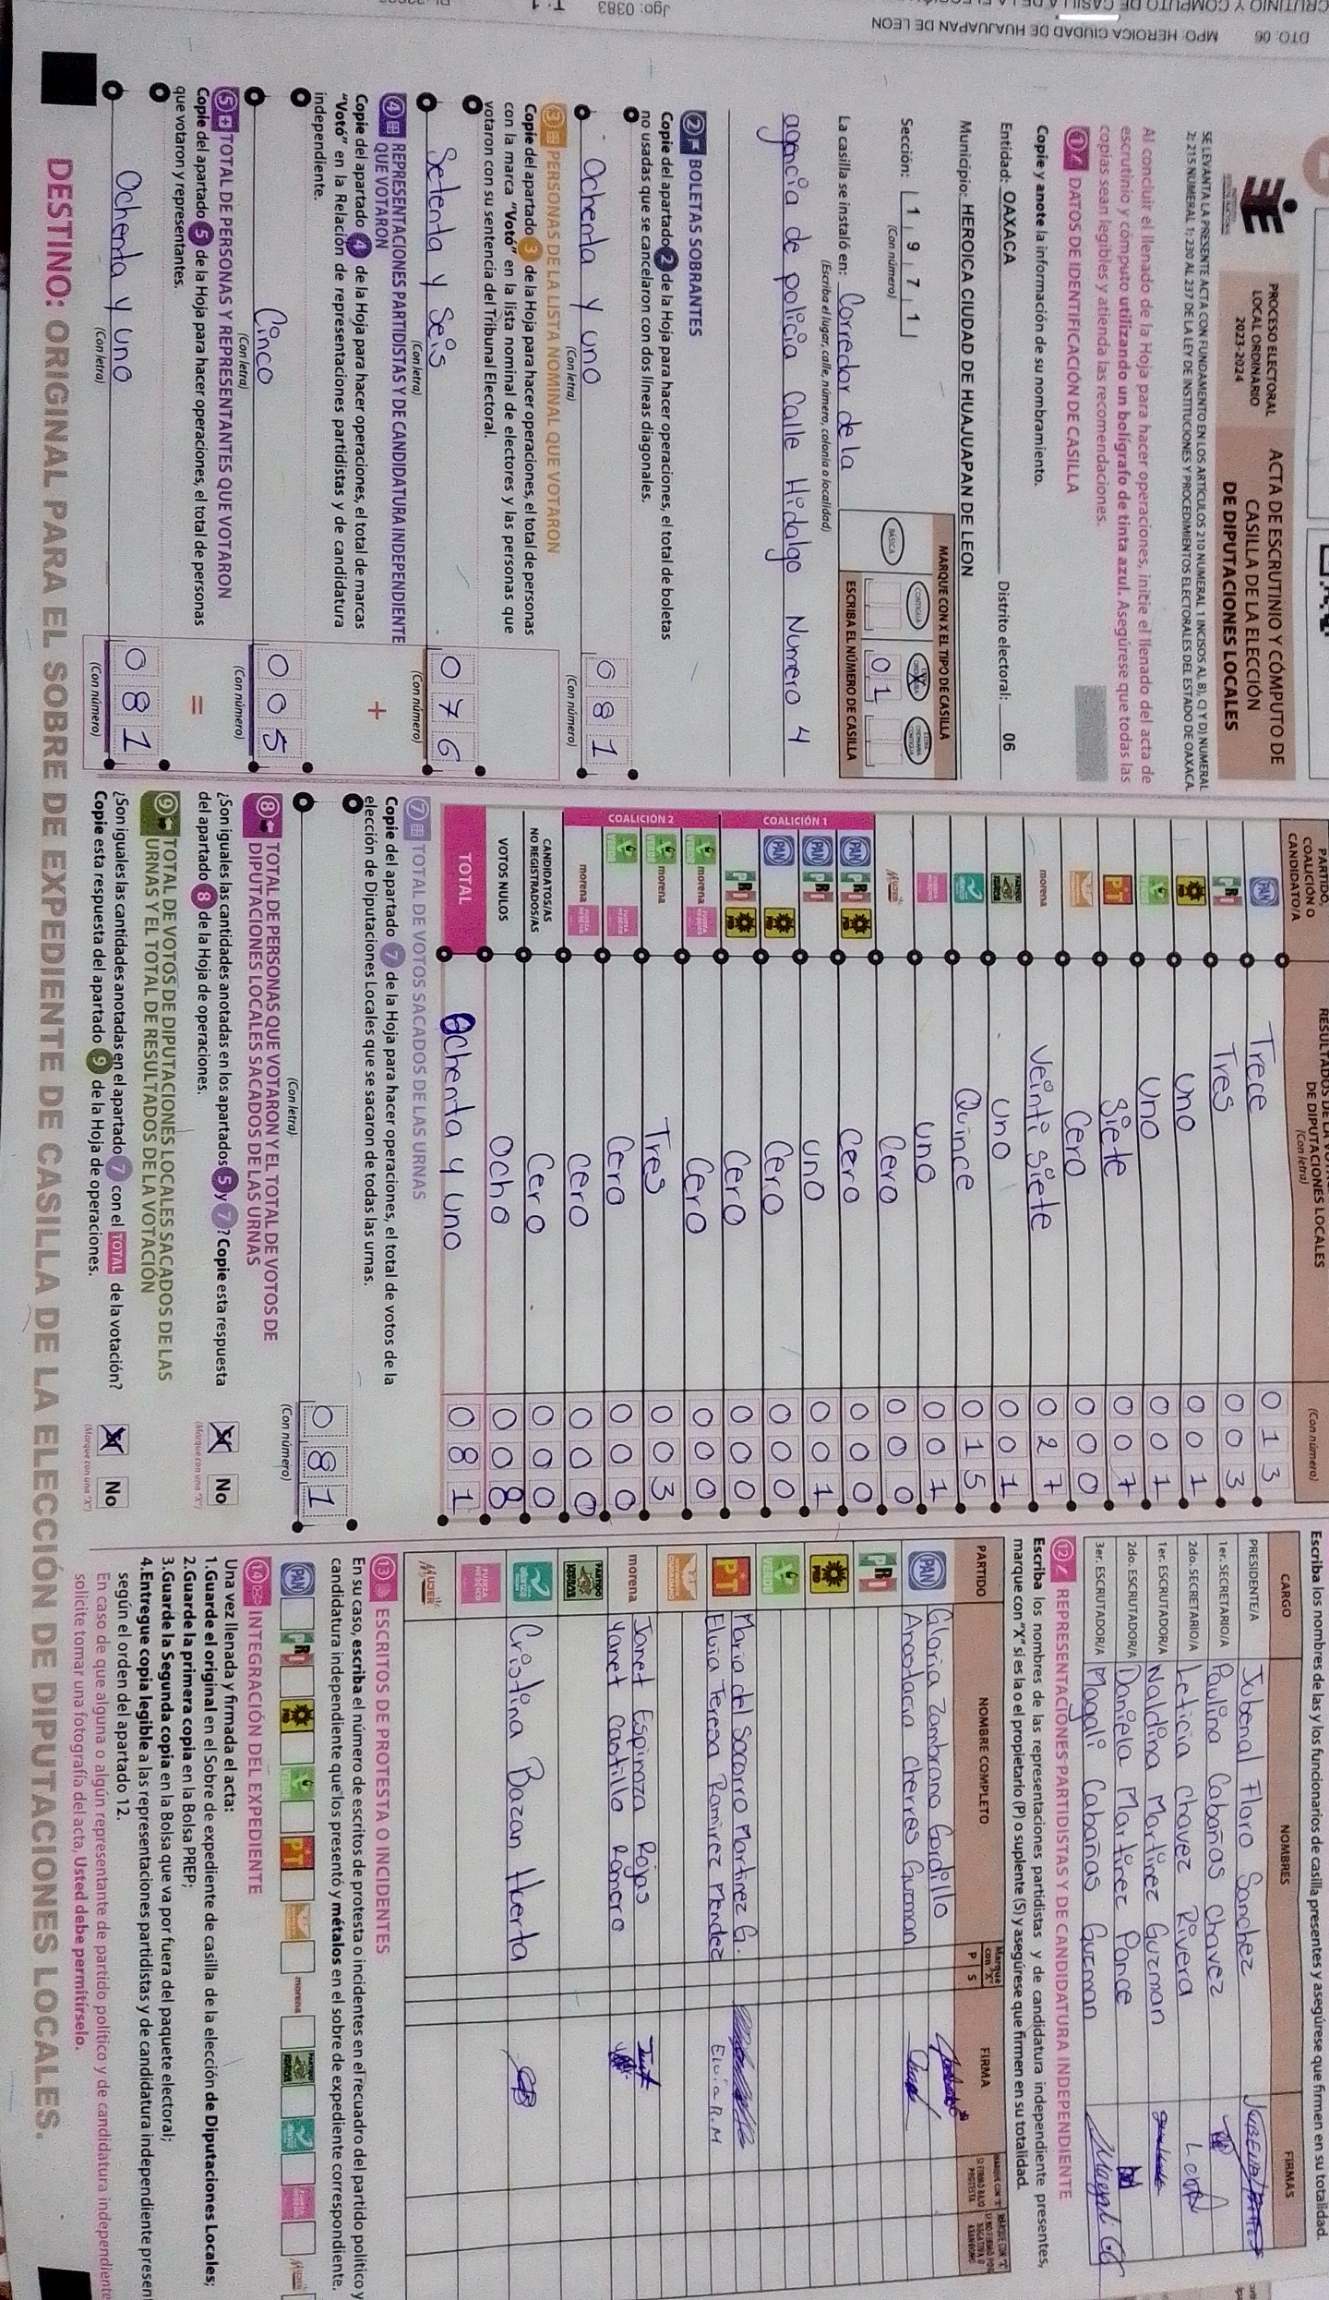 DTO: 06 MPO: HEROICA CIUDAD DE HUAJUAPAN DE LEON
Jgo: 0383 T: 1
PROCESO ELECTORAL
LOCAL ORDINARIO
2023-2024
ACTA DE ESCRUTINIO Y CÓMPUTO DE
CASILLA DE LA ELECCIÓN
DE DIPUTACIONES LOCALES
SE LEVANTA LA PRESENTE ACTA CON FUNDAMENTO EN LOS ARTÍCULOS 210 NUMERAL 1 INCISOS A), B), C) Y D) NUMERAL
2; 215 NUMERAL 1; 230 AL 237 DE LA LEY DE INSTITUCIONES Y PROCEDIMIENTOS ELECTORALES DEL ESTADO DE OAXACA.
Al concluir el llenado de la Hoja para hacer operaciones, inicie el llenado del acta de
escrutinio y cómputo utilizando un bolígrafo de tinta azul. Asegúrese que todas las
copias sean legibles y atienda las recomendaciones.
1 DATOS DE IDENTIFICACIÓN DE CASILLA
Copie y anote la información de su nombramiento.
Entidad: OAXACA Distrito electoral: 06
Municipio: HEROICA CIUDAD DE HUAJUAPAN DE LEON
Sección: 1 9 7 1
(Con número)
MARQUE CON X EL TIPO DE CASILLA
BÁSICA CONTIGUA X
ESCRIBA EL NÚMERO DE CASILLA
0 1
La casilla se instaló en: Corredor de la
(Escriba el lugar, calle, número, colonia o localidad)
agencia de policia Calle Hidalgo Numero 4
2 BOLETAS SOBRANTES
Copie del apartado 2 de la Hoja para hacer operaciones, el total de boletas
no usadas que se cancelaron con dos líneas diagonales.
Ochenta y uno 0 8 1
(Con letra) (Con número)
3 PERSONAS DE LA LISTA NOMINAL QUE VOTARON
Copie del apartado 3 de la Hoja para hacer operaciones, el total de personas
con la marca "Votó" en la lista nominal de electores y las personas que
votaron con su sentencia del Tribunal Electoral.
Setenta y seis 0 7 6
(Con letra) (Con número)
4 REPRESENTACIONES PARTIDISTAS Y DE CANDIDATURA INDEPENDIENTE
QUE VOTARON
Copie del apartado 4 de la Hoja para hacer operaciones, el total de marcas
"Votó" en la Relación de representaciones partidistas y de candidatura
independiente.
+
Cinco 0 0 5
(Con letra) (Con número)
5 TOTAL DE PERSONAS Y REPRESENTANTES QUE VOTARON
Copie del apartado 5 de la Hoja para hacer operaciones, el total de personas
que votaron y representantes.
=
Ochenta y uno 0 8 1
(Con letra) (Con número)
PARTIDO,
COALICIÓN O
CANDIDATO/A
DE DIPUTACIONES LOCALES
(Con letra)
(Con número)
PAN Trece 0 1 3
PRI Tres 0 0 3
PRD uno 0 0 1
VERDE Uno 0 0 1
PT Siete 0 0 7
Cero 0 0 0
morena Veinti siete 0 2 7
uno 0 0 1
Quince 0 1 5
uno 0 0 1
Mujer Cero 0 0 0
COALICIÓN 1
PAN PRI PRD Cero 0 0 0
PAN PRI uno 0 0 1
PAN PRD Cero 0 0 0
PRI PRD Cero 0 0 0
COALICIÓN 2
VERDE morena Cero 0 0 0
VERDE morena Tres 0 0 3
VERDE Cero 0 0 0
morena Cero 0 0 0
CANDIDATOS/AS
NO REGISTRADOS/AS Cero 0 0 0
VOTOS NULOS Ocho 0 0 8
TOTAL Ochenta y uno 0 8 1
7 TOTAL DE VOTOS SACADOS DE LAS URNAS
Copie del apartado 7 de la Hoja para hacer operaciones, el total de votos de la
elección de Diputaciones Locales que se sacaron de todas las urnas.
0 8 1
(Con letra) (Con número)
8 TOTAL DE PERSONAS QUE VOTARON Y EL TOTAL DE VOTOS DE
DIPUTACIONES LOCALES SACADOS DE LAS URNAS
¿Son iguales las cantidades anotadas en los apartados 5 y 7? Copie esta respuesta
del apartado 8 de la Hoja de operaciones.
X No
(Marque con una "X")
9 TOTAL DE VOTOS DE DIPUTACIONES LOCALES SACADOS DE LAS
URNAS Y EL TOTAL DE RESULTADOS DE LA VOTACIÓN
¿Son iguales las cantidades anotadas en el apartado 7 con el TOTAL de la votación?
Copie esta respuesta del apartado 9 de la Hoja de operaciones.
X No
(Marque con una "X")
Escriba los nombres de las y los funcionarios de casilla presentes y asegúrese que firmen en su totalidad.
CARGO NOMBRES FIRMAS
PRESIDENTE/A Jubenal Floro Sanchez
1er. SECRETARIO/A Paulina Cabañas Chavez
2do. SECRETARIO/A Leticia Chavez Rivera
1er. ESCRUTADOR/A Naldina Martinez Guzman
2do. ESCRUTADOR/A Daniela Martinez Ponce
3er. ESCRUTADOR/A Magali Cabañas Guzman
12 REPRESENTACIONES PARTIDISTAS Y DE CANDIDATURA INDEPENDIENTE
Escriba los nombres de las representaciones partidistas y de candidatura independiente presentes,
marque con "X" si es la o el propietario (P) o suplente (S) y asegúrese que firmen en su totalidad.
PARTIDO NOMBRE COMPLETO Marque con "X" P S FIRMA
PAN Gloria Zambrano Gordillo
Anastacia Cherres Guzman
PRI
PRD
VERDE Maria del Socorro Martinez G.
PT Elvia Teresa Ramirez Mendez Elvia R.M
morena Janet Espinoza Rojas
Yanet Castillo Romero
Cristina Bazan Huerta
Mujer
13 ESCRITOS DE PROTESTA O INCIDENTES
En su caso, escriba el número de escritos de protesta o incidentes en el recuadro del partido político y
candidatura independiente que los presentó y métalos en el sobre de expediente correspondiente.
PAN PRI PRD VERDE PT morena Mujer
14 INTEGRACIÓN DEL EXPEDIENTE
Una vez llenada y firmada el acta:
1.Guarde el original en el Sobre de expediente de casilla de la elección de Diputaciones Locales;
2.Guarde la primera copia en la Bolsa PREP;
3.Guarde la Segunda copia en la Bolsa que va por fuera del paquete electoral;
4.Entregue copia legible a las representaciones partidistas y de candidatura independiente presen
según el orden del apartado 12.
En caso de que alguna o algún representante de partido político y de candidatura independiente
solicite tomar una fotografía del acta, Usted debe permitírselo.
DESTINO: ORIGINAL PARA EL SOBRE DE EXPEDIENTE DE CASILLA DE LA ELECCIÓN DE DIPUTACIONES LOCALES.